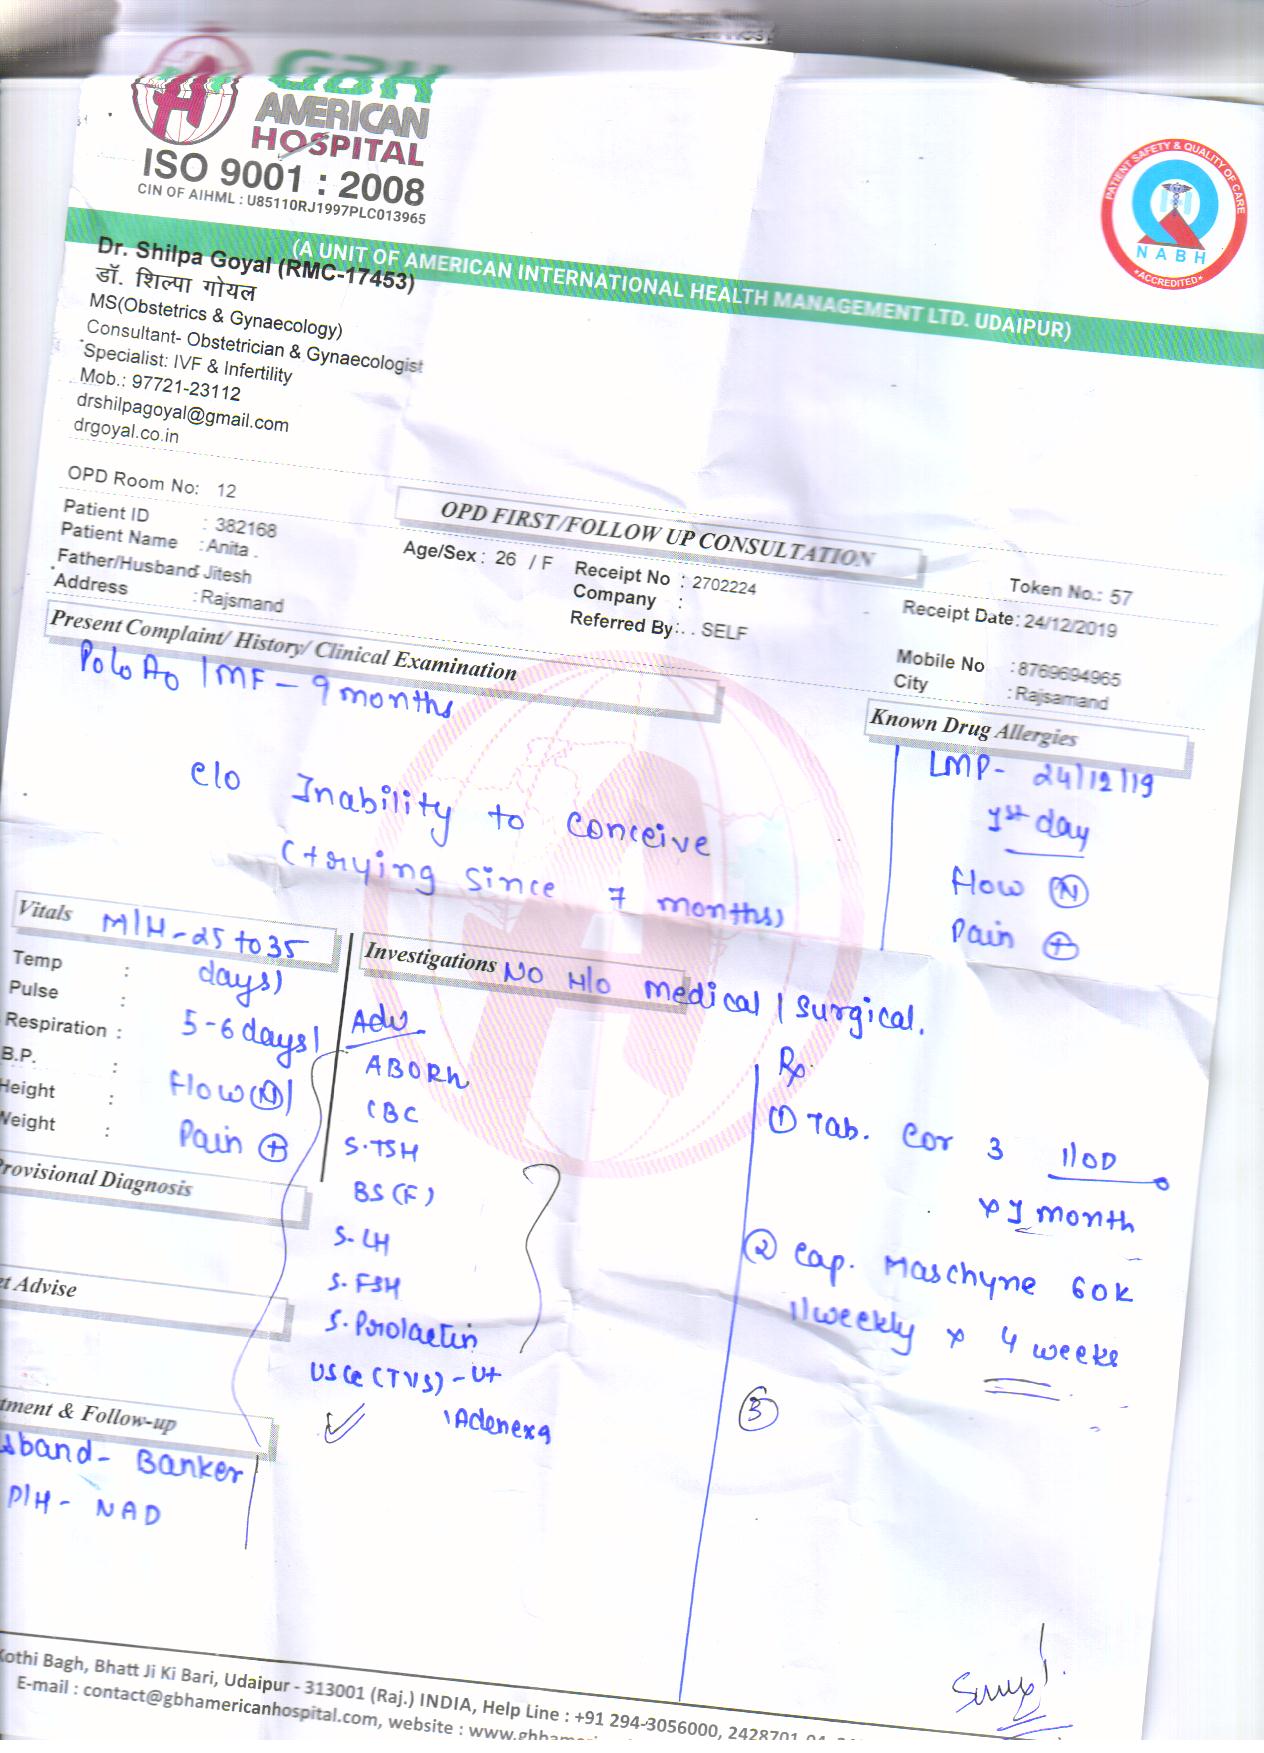 GBH
AMERICAN
HOSPITAL
ISO 9001 : 2008
CIN OF AIHML : U85110RJ1997PLC013965
PATIENT SAFETY & QUALITY OF CARE
NABH
*ACCREDITED*
(A UNIT OF AMERICAN INTERNATIONAL HEALTH MANAGEMENT LTD. UDAIPUR)
Dr. Shilpa Goyal (RMC-17453)
डॉ. शिल्पा गोयल
MS(Obstetrics & Gynaecology)
Consultant- Obstetrician & Gynaecologist
Specialist: IVF & Infertility
Mob.: 97721-23112
drshilpagoyal@gmail.com
drgoyal.co.in
OPD Room No: 12
OPD FIRST/FOLLOW UP CONSULTATION
Patient ID : 382168
Patient Name : Anita .
Father/Husband Jitesh
Address : Rajsmand
Age/Sex : 26 / F
Receipt No : 2702224
Company :
Referred By: . . SELF
Token No.: 57
Receipt Date: 24/12/2019
Mobile No : 8769694965
City : Rajsamand
Present Complaint/ History/ Clinical Examination
P0L0A0 | MF - 9 months
c/o Inability to conceive
(trying since 7 months)
Known Drug Allergies
LMP- 24/12/19
1st day
flow (N)
Pain (+)
Vitals M/H - 25 to 35
days)
5-6 days|
Flow (N)|
Pain (+)
Temp :
Pulse :
Respiration :
B.P. :
Height :
Weight :
Provisional Diagnosis
et Advise
tment & Follow-up
sband - Banker
P/H - NAD
Investigations No H/o Medical / Surgical.
Adv
ABORh
CBC
S.TSH
BS (F)
S. LH
S. FSH
S. Prolactin
USG (TVS) - Ut
Adenexa
Rx
① Tab. Cor 3 1/OD
x 1 month
② Cap. Maschyne 60K
1/weekly x 4 weeks
③
Kothi Bagh, Bhatt Ji Ki Bari, Udaipur - 313001 (Raj.) INDIA, Help Line : +91 294-3056000, 2428701
E-mail : contact@gbhamericanhospital.com, website : www.gbhameri